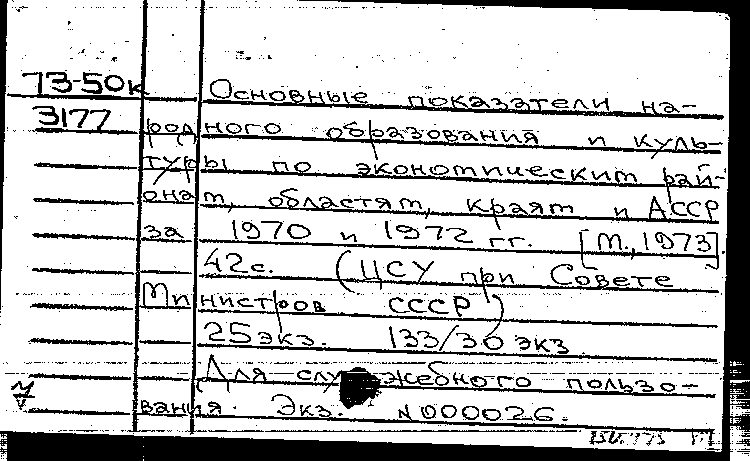 73-50к Основные показатели на-
3177 родного образования и куль-
туры по экономическим рай-
онам, областям, краям и АССР
за 1970 и 1972 гг. [М., 1973].
42с. (ЦСУ при Совете
Министров СССР)
25экз. 133/30 экз
Для служебного пользо-
вания. Экз. N 000026.